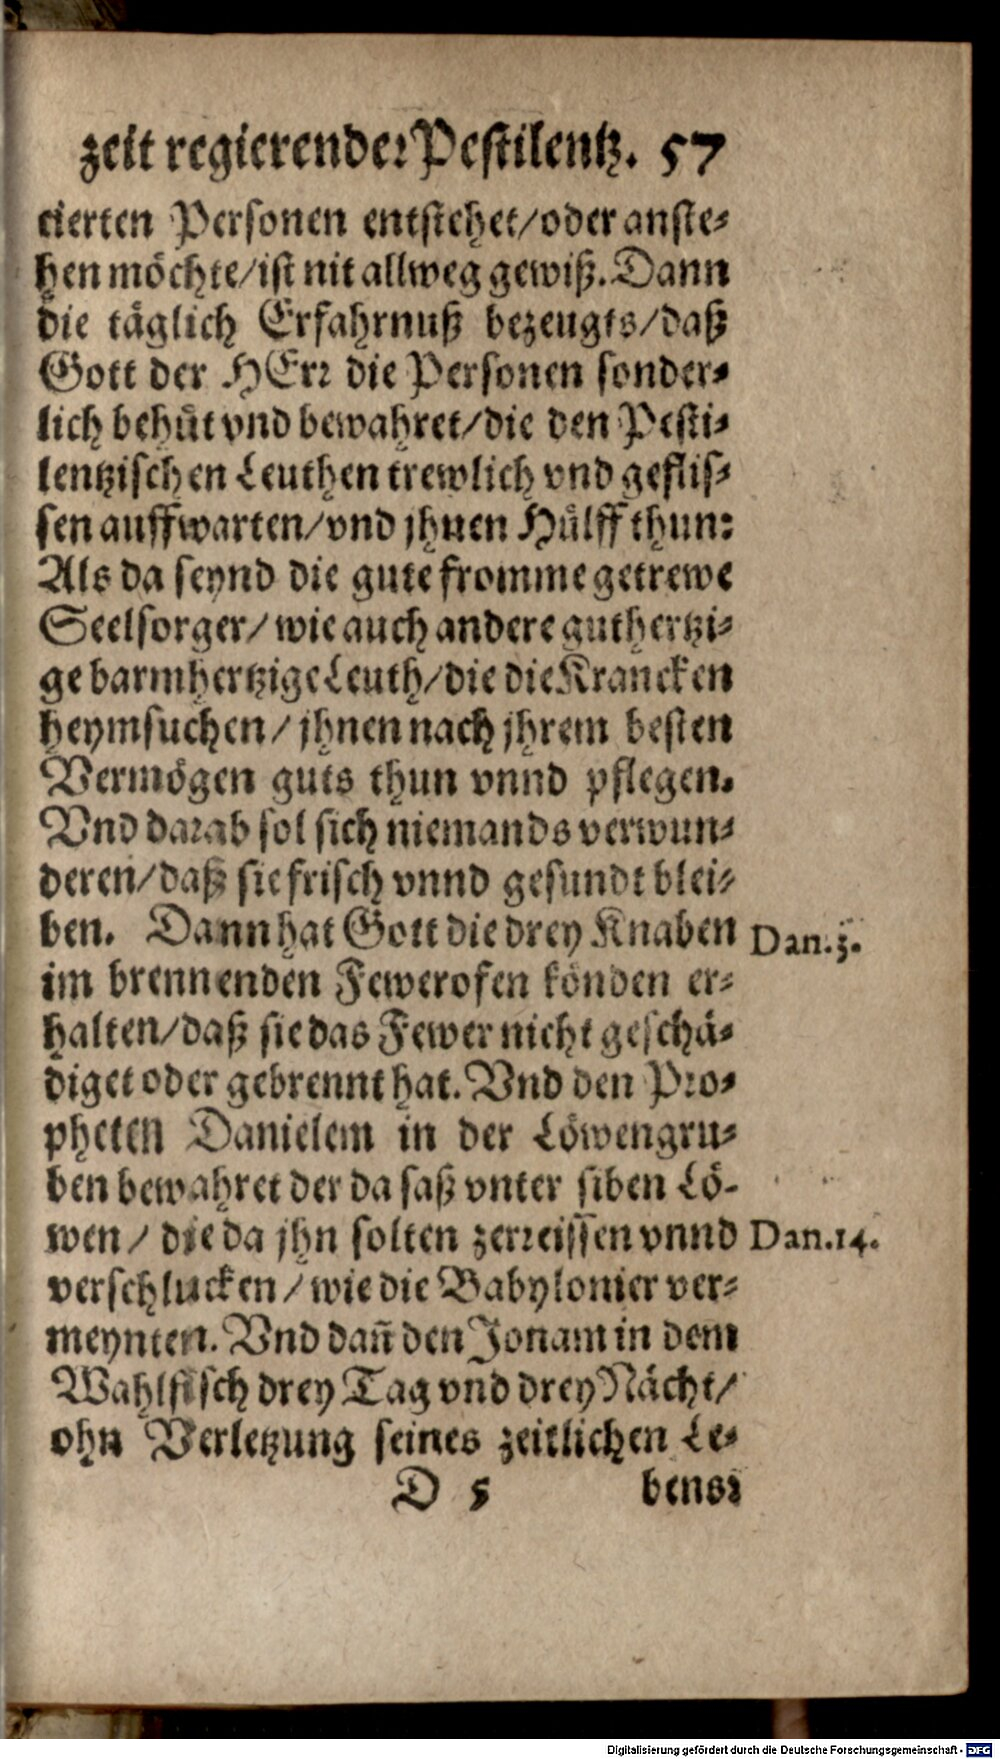 zeit regierender Pestilentz. 57
cierten Personen entstehet/oder anste-
hen möchte/ist nit allweg gewiß. Dann
die täglich Erfahrnuß bezeugts/daß
Gott der HErr die Personen sonder-
lich behüt vnd bewahret/die den Pesti-
lentzischen Leuthen trewlich vnd geflis-
sen auffwarten/vnd jhnen Hülff thun:
Als da seynd die gute fromme getrewe
Seelsorger/wie auch andere guthertzi-
ge barmhertzige Leuth/die die Krancken
heymsuchen/jhnen nach jhrem besten
Vermögen guts thun vnnd pflegen.
Vnd darab sol sich niemands verwun-
deren/daß sie frisch vnnd gesundt blei-
ben. Dann hat Gott die drey Knaben Dan.3.
im brennenden Fewerofen könden er-
halten/daß sie das Fewer nicht geschä-
diget oder gebrennt hat. Vnd den Pro-
pheten Danielem in der Löwengru-
ben bewahret der da saß vnter siben Lö-
wen/die da jhn solten zerreissen vnnd Dan.14.
verschlucken/wie die Babylonier ver-
meynten. Vnd dañ den Jonam in dem
Wahlfisch drey Tag vnd drey Nächt/
ohn Verletzung seines zeitlichen Le-
D 5 bens:
Digitalisierung gefördert durch die Deutsche Forschungsgemeinschaft - DFG